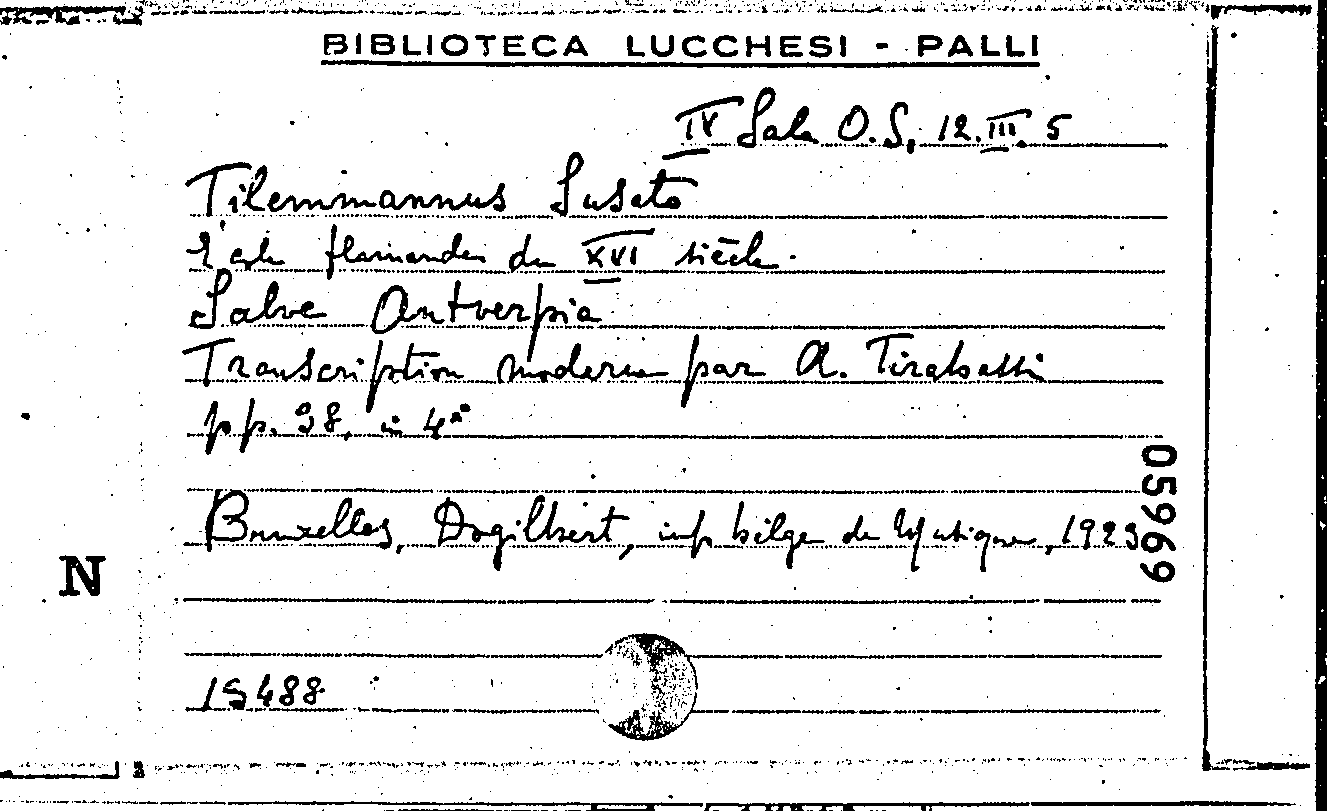 BIBLIOTECA LUCCHESI - PALLI
IV Sala O.S, 12.III.5
Tilemmannus Susato
flamande du XVI siècle.
Salve Antverpia
Transcription moderne par A. Tirabassi
pp. 38, in 4º
Bruxelles, Dogilbert, imp belge de Musique, 1923
05969
N
15488